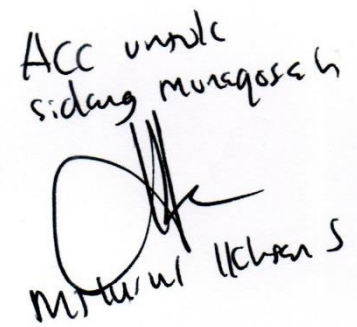 ACC untuk
sidang munaqosah
Ikhsan S